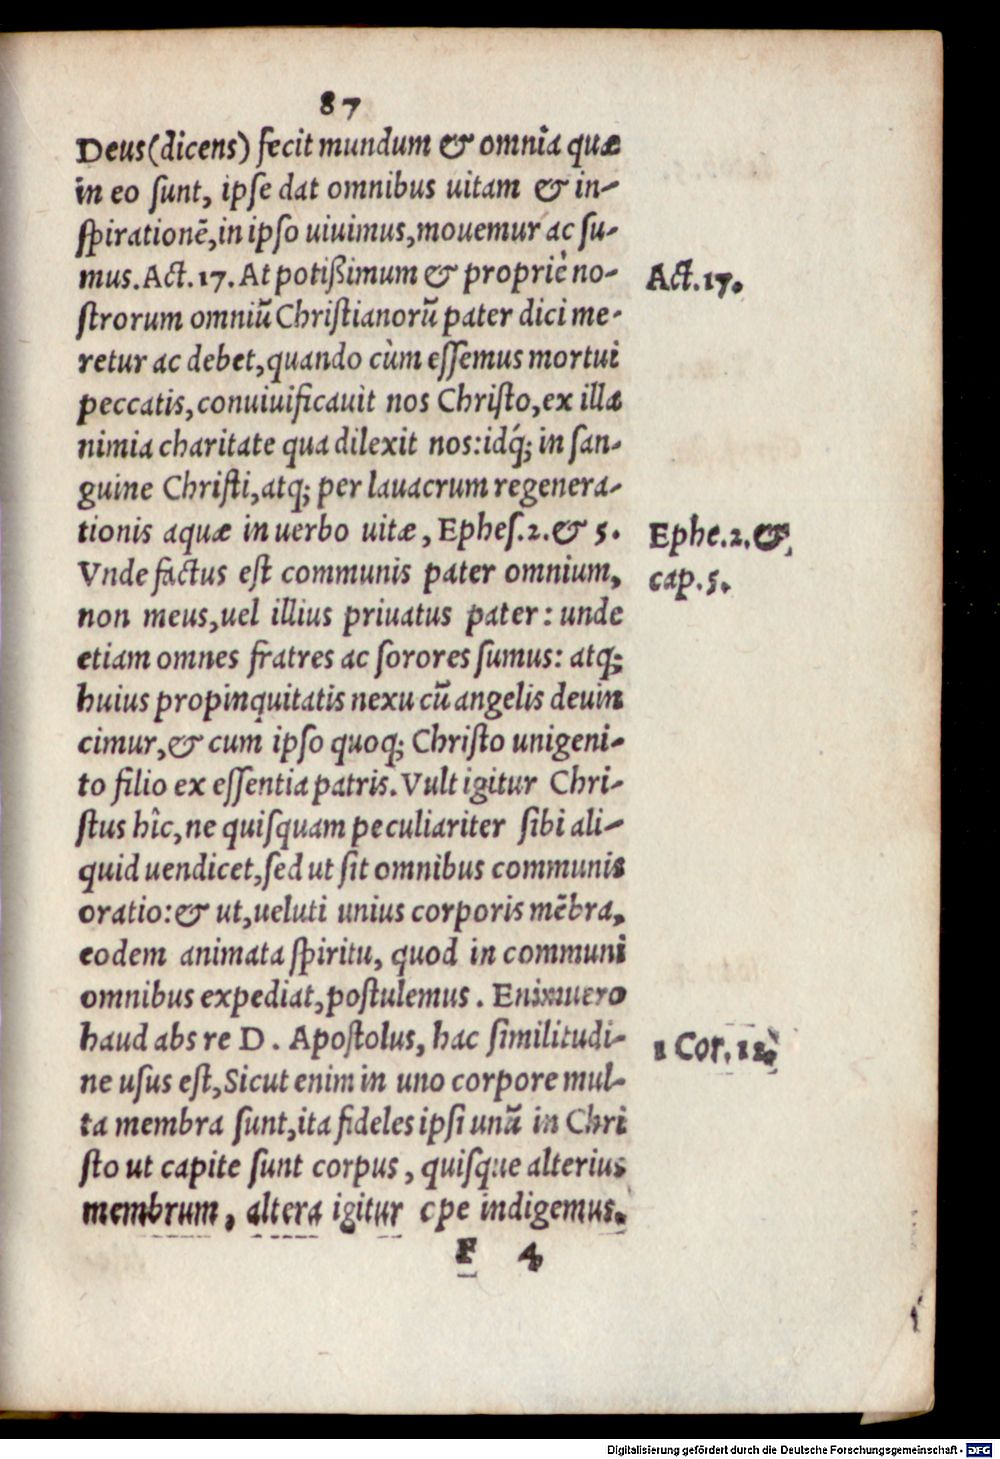 87
Deus (dicens) fecit mundum & omnia quæ
in eo sunt, ipse dat omnibus uitam & in-
spirationē, in ipso uiuimus, mouemur ac su-
mus. Act. 17. At potißimum & propriè no-
strorum omniū Christianorū pater dici me-
retur ac debet, quando cùm essemus mortui
peccatis, conuiuificauit nos Christo, ex illa
nimia charitate qua dilexit nos: idq́; in san-
guine Christi, atq; per lauacrum regenera-
tionis aquæ in uerbo uitæ, Ephes. 2. & 5.
Vnde factus est communis pater omnium,
non meus, uel illius priuatus pater: unde
etiam omnes fratres ac sorores sumus: atq;
huius propinquitatis nexu cū angelis deuin
cimur, & cum ipso quoq; Christo unigeni-
to filio ex essentia patris. Vult igitur Chri-
stus hîc, ne quisquam peculiariter sibi ali-
quid uendicet, sed ut sit omnibus communis
oratio: & ut, ueluti unius corporis mēbra,
eodem animata spiritu, quod in communi
omnibus expediat, postulemus. Enimuero
haud abs re D. Apostolus, hac similitudi-
ne usus est, Sicut enim in uno corpore mul-
ta membra sunt, ita fideles ipsi unā in Chri
sto ut capite sunt corpus, quisque alterius
membrum, altera igitur ope indigemus.
F 4
Act. 17.
Ephe. 2. &
cap. 5.
1 Cor. 12.
Digitalisierung gefördert durch die Deutsche Forschungsgemeinschaft - DFG